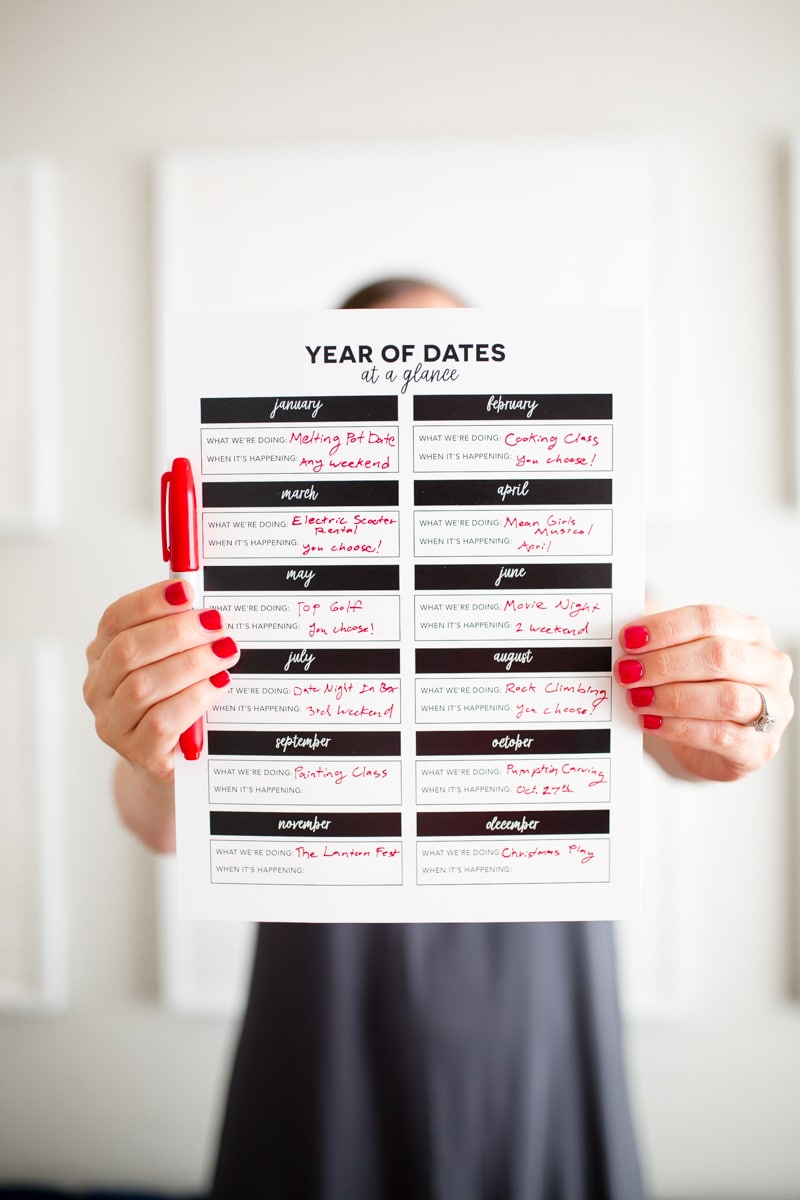 YEAR OF DATES
at a glance
january
WHAT WE'RE DOING: Melting Pot Date
WHEN IT'S HAPPENING: Any weekend
february
WHAT WE'RE DOING: Cooking Class
WHEN IT'S HAPPENING: you choose!
march
WHAT WE'RE DOING: Electric Scooter
Rental
WHEN IT'S HAPPENING: you choose!
april
WHAT WE'RE DOING: Mean Girls
Musical
WHEN IT'S HAPPENING: April
may
WHAT WE'RE DOING: Top Golf
EN IT'S HAPPENING: you choose!
june
WHAT WE'RE DOING: Movie Night
WHEN IT'S HAPPENING: 2 weekend
july
WE'RE DOING: Date Night In Box
WHEN IT'S HAPPENING: 3rd Weekend
august
WHAT WE'RE DOING: Rock Climbing
WHEN IT'S HAPPENING: you choose!
september
WHAT WE'RE DOING: Painting Class
WHEN IT'S HAPPENING:
october
WHAT WE'RE DOING: Pumpkin Carving
WHEN IT'S HAPPENING: Oct. 27th
november
WHAT WE'RE DOING: The Lantern Fest
WHEN IT'S HAPPENING:
december
WHAT WE'RE DOING: Christmas Play
WHEN IT'S HAPPENING: